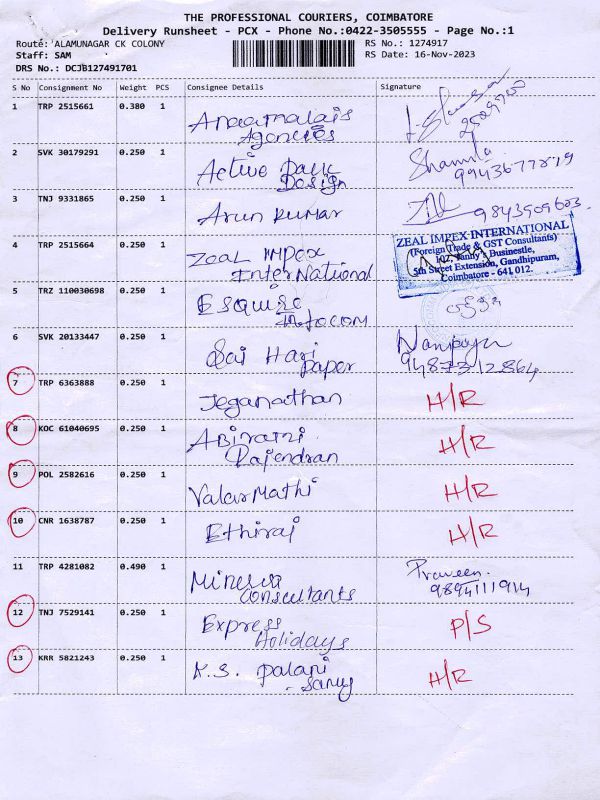 THE PROFESSIONAL COURIERS, COIMBATORE
Delivery Runsheet - PCX - Phone No.:0422-3505555 - Page No.:1
Route: ALAMUNAGAR CK COLONY RS No.: 1274917
Staff: SAM RS Date: 16-Nov-2023
DRS No.: DCJB127491701
S No Consignment No Weight PCS Consignee Details Signature
1 TRP 2515661 0.380 1 Annamalais
Agencies
2 SVK 30179291 0.250 1 Active Park Shamila
Design 9943677819
3 TNJ 9331865 0.250 1 Arun Kumar 9843509603
4 TRP 2515664 0.250 1 Zeal Impex
International
ZEAL IMPEX INTERNATIONAL
(Foreign Trade & GST Consultants)
102, Vanity's Businestle,
5th Street Extension, Gandhipuram,
Coimbatore - 641 012.
5 TRZ 110030698 0.250 1 Esquire
Infocom
6 SVK 20133447 0.250 1 Sai Hari
Paper 9487312864
7 TRP 6363888 0.250 1 Jeganathan H/R
8 KOC 61040695 0.250 1 Abirami H/R
Rajendran
9 POL 2582616 0.250 1 ValarMathi H/R
10 CNR 1638787 0.250 1 Ethiraj H/R
11 TRP 4281082 0.490 1 Minerva Praveen.
Consultants 9894111914
12 TNJ 7529141 0.250 1 Express P/S
Holidays
13 KRR 5821243 0.250 1 K.S. Palani H/R
- Samy